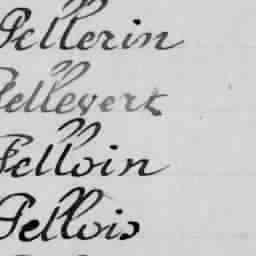 Pellerin
Pellevert
Pelloin
Pellois